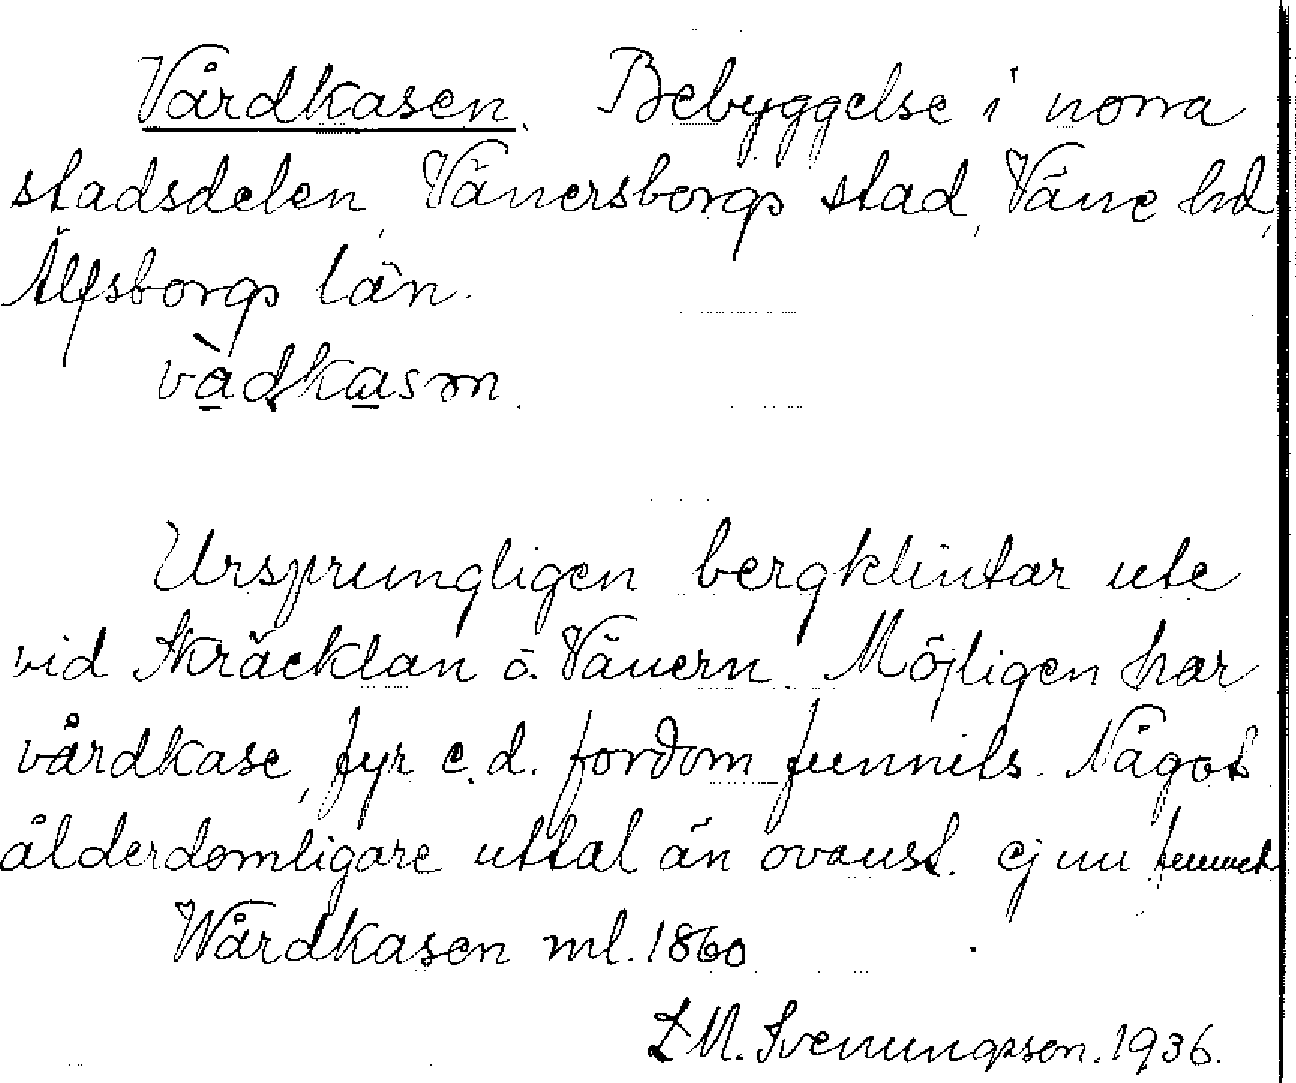 Vårdkasen. Bebyggelse i norra
stadsdelen, Vänersborgs stad, Väne hd,
Älfsborgs län.
vàdkasm.
Ursprungligen bergklintar ute
vid Skräcklan ö. Vänern. Möjligen har
vårdkase, fyr e.d. fordom funnits. Något
ålderdomligare uttal än ovanst. ej nu funnet
Wårdkasen ml. 1860
L M. Svenungsson. 1936.